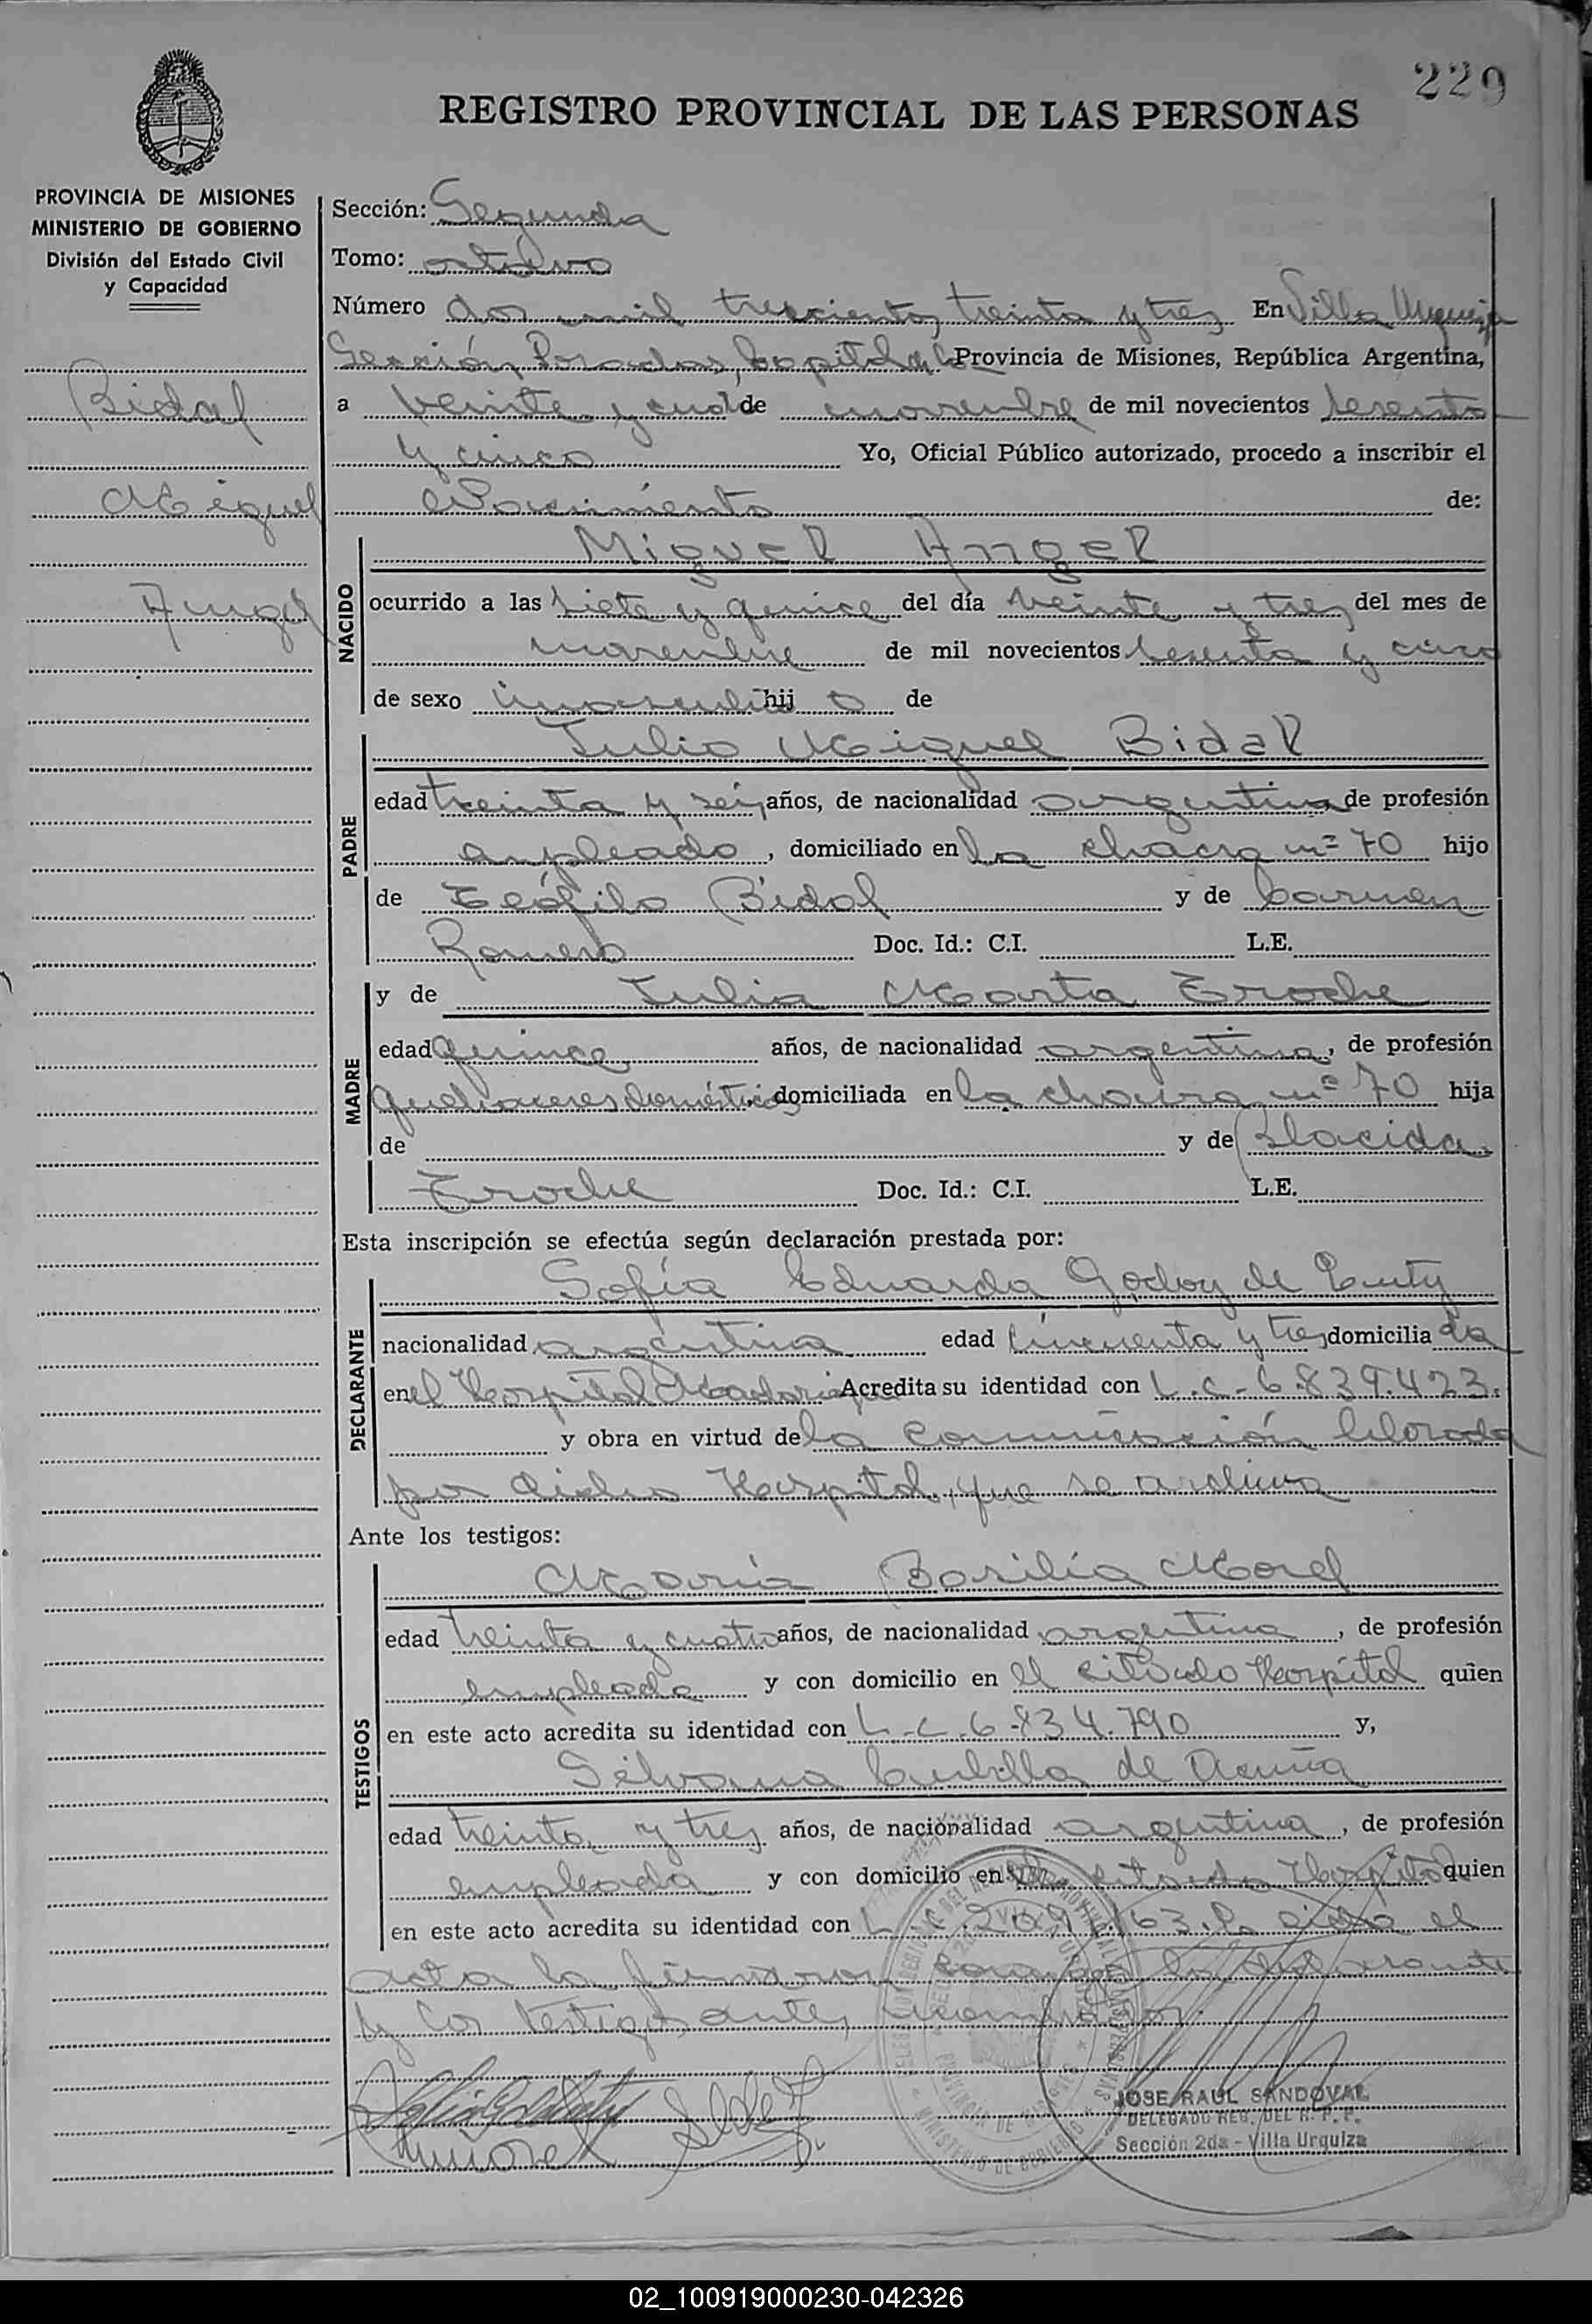 229
REGISTRO PROVINCIAL DE LAS PERSONAS
PROVINCIA DE MISIONES
MINISTERIO DE GOBIERNO
División del Estado Civil
y Capacidad
Bidal
Miguel
Angel
Sección: Segunda
Tomo: octavo
Número dos mil trescientos treinta y tres En Villa Urquiza
Sección Posadas, Capital Provincia de Misiones, República Argentina,
a veinte y cuat de noviembre de mil novecientos sesenta
y cinco Yo, Oficial Público autorizado, procedo a inscribir el
Nacimiento de:
NACIDO
Miguel Angel
ocurrido a las siete y quince del día veinte y tres del mes de
noviembre de mil novecientos sesenta y cinco
de sexo masculi hij o de
PADRE
Julio Miguel Bidal
edad treinta y seis años, de nacionalidad argentina de profesión
empleado, domiciliado en la chacra nº 70 hijo
de Teófilo Bidal y de Carmen
Romero Doc. Id.: C.I. L.E.
MADRE
y de Julia Marta Troche
edad quince años, de nacionalidad argentina, de profesión
quehaceres domésticos domiciliada en la chacra nº 70 hija
de y de Plácida
Troche Doc. Id.: C.I. L.E.
Esta inscripción se efectúa según declaración prestada por:
DECLARANTE
Sofía Eduarda Godoy de
nacionalidad argentina edad cincuenta y tres domicilia da
en el Hospital Madariaga Acredita su identidad con L.C-6.839.423.
y obra en virtud de la comunicación labrada
por dicho Hospital, que se archiva
Ante los testigos:
TESTIGOS
María Basilia Morel
edad treinta y cuatro años, de nacionalidad argentina, de profesión
empleada y con domicilio en el citado Hospital quien
en este acto acredita su identidad con L.C.6.834.790 y,
Silvana de Acuña
edad treinta y tres años, de nacionalidad argentina, de profesión
empleada y con domicilio en el citado Hospital quien
en este acto acredita su identidad con L el
acta la firman la declarante
y los testigos antes nombrados.
JOSE RAUL SANDOVAL
DELEGADO REG. DEL R. P. P.
Sección 2da - Villa Urquiza
02_100919000230-042326